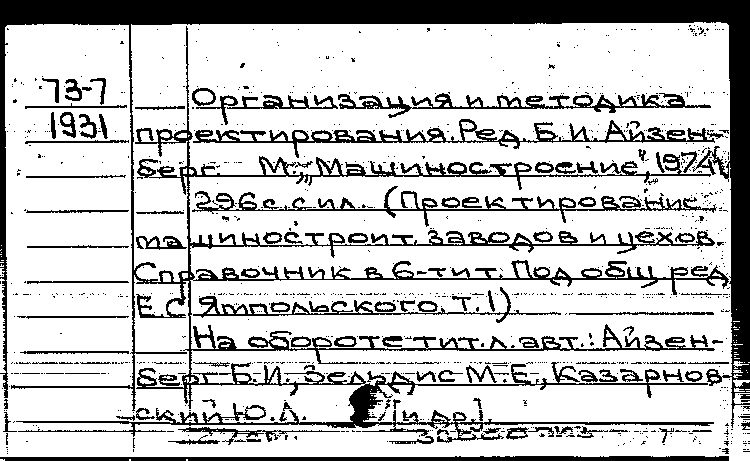 73-7
1931
Организация и методика
проектирования. Ред. Б. И. Айзен-
берг. М., „Машиностроение", 1974
296 с. с ил. (Проектирование
машиностроит. заводов и цехов.
Справочник в 6-ти т. Под общ ред
Е. С Ямпольского. Т. 1).
На обороте тит. л. авт.: Айзен-
берг Б. И., Зельдис М. Е., Казарнов-
ский Ю. Л. [и др.].
27 см.